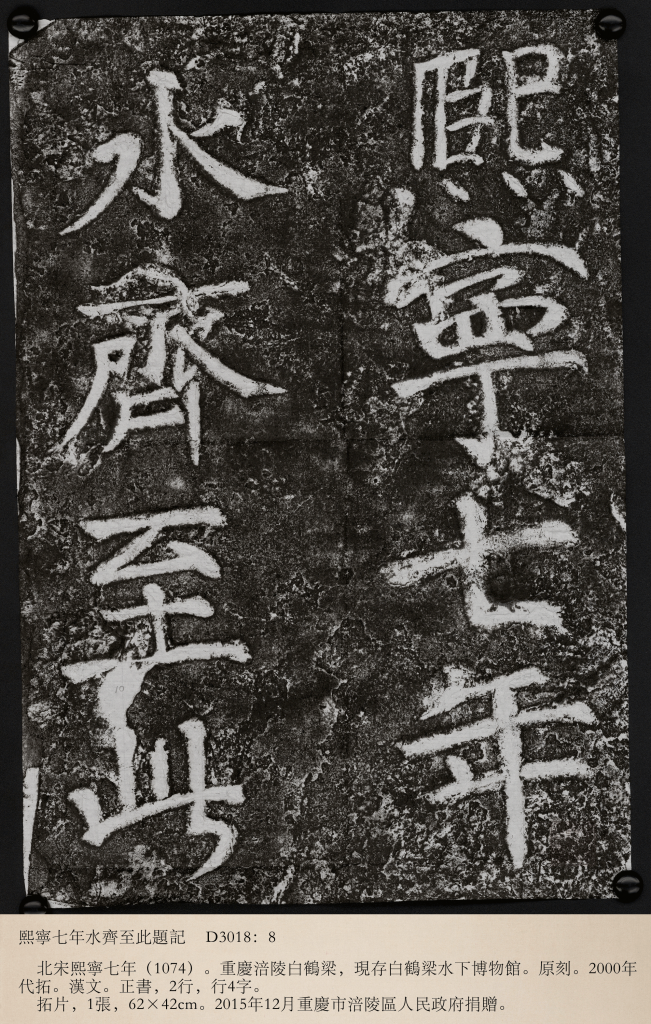 熙寧七年
水齊至此
熙寧七年水齊至此題記 D3018：8
北宋熙寧七年（1074）。重慶涪陵白鶴梁，現存白鶴梁水下博物館。原刻。2000年
代拓。漢文。正書，2行，行4字。
拓片，1張，62×42cm。2015年12月重慶市涪陵區人民政府捐贈。